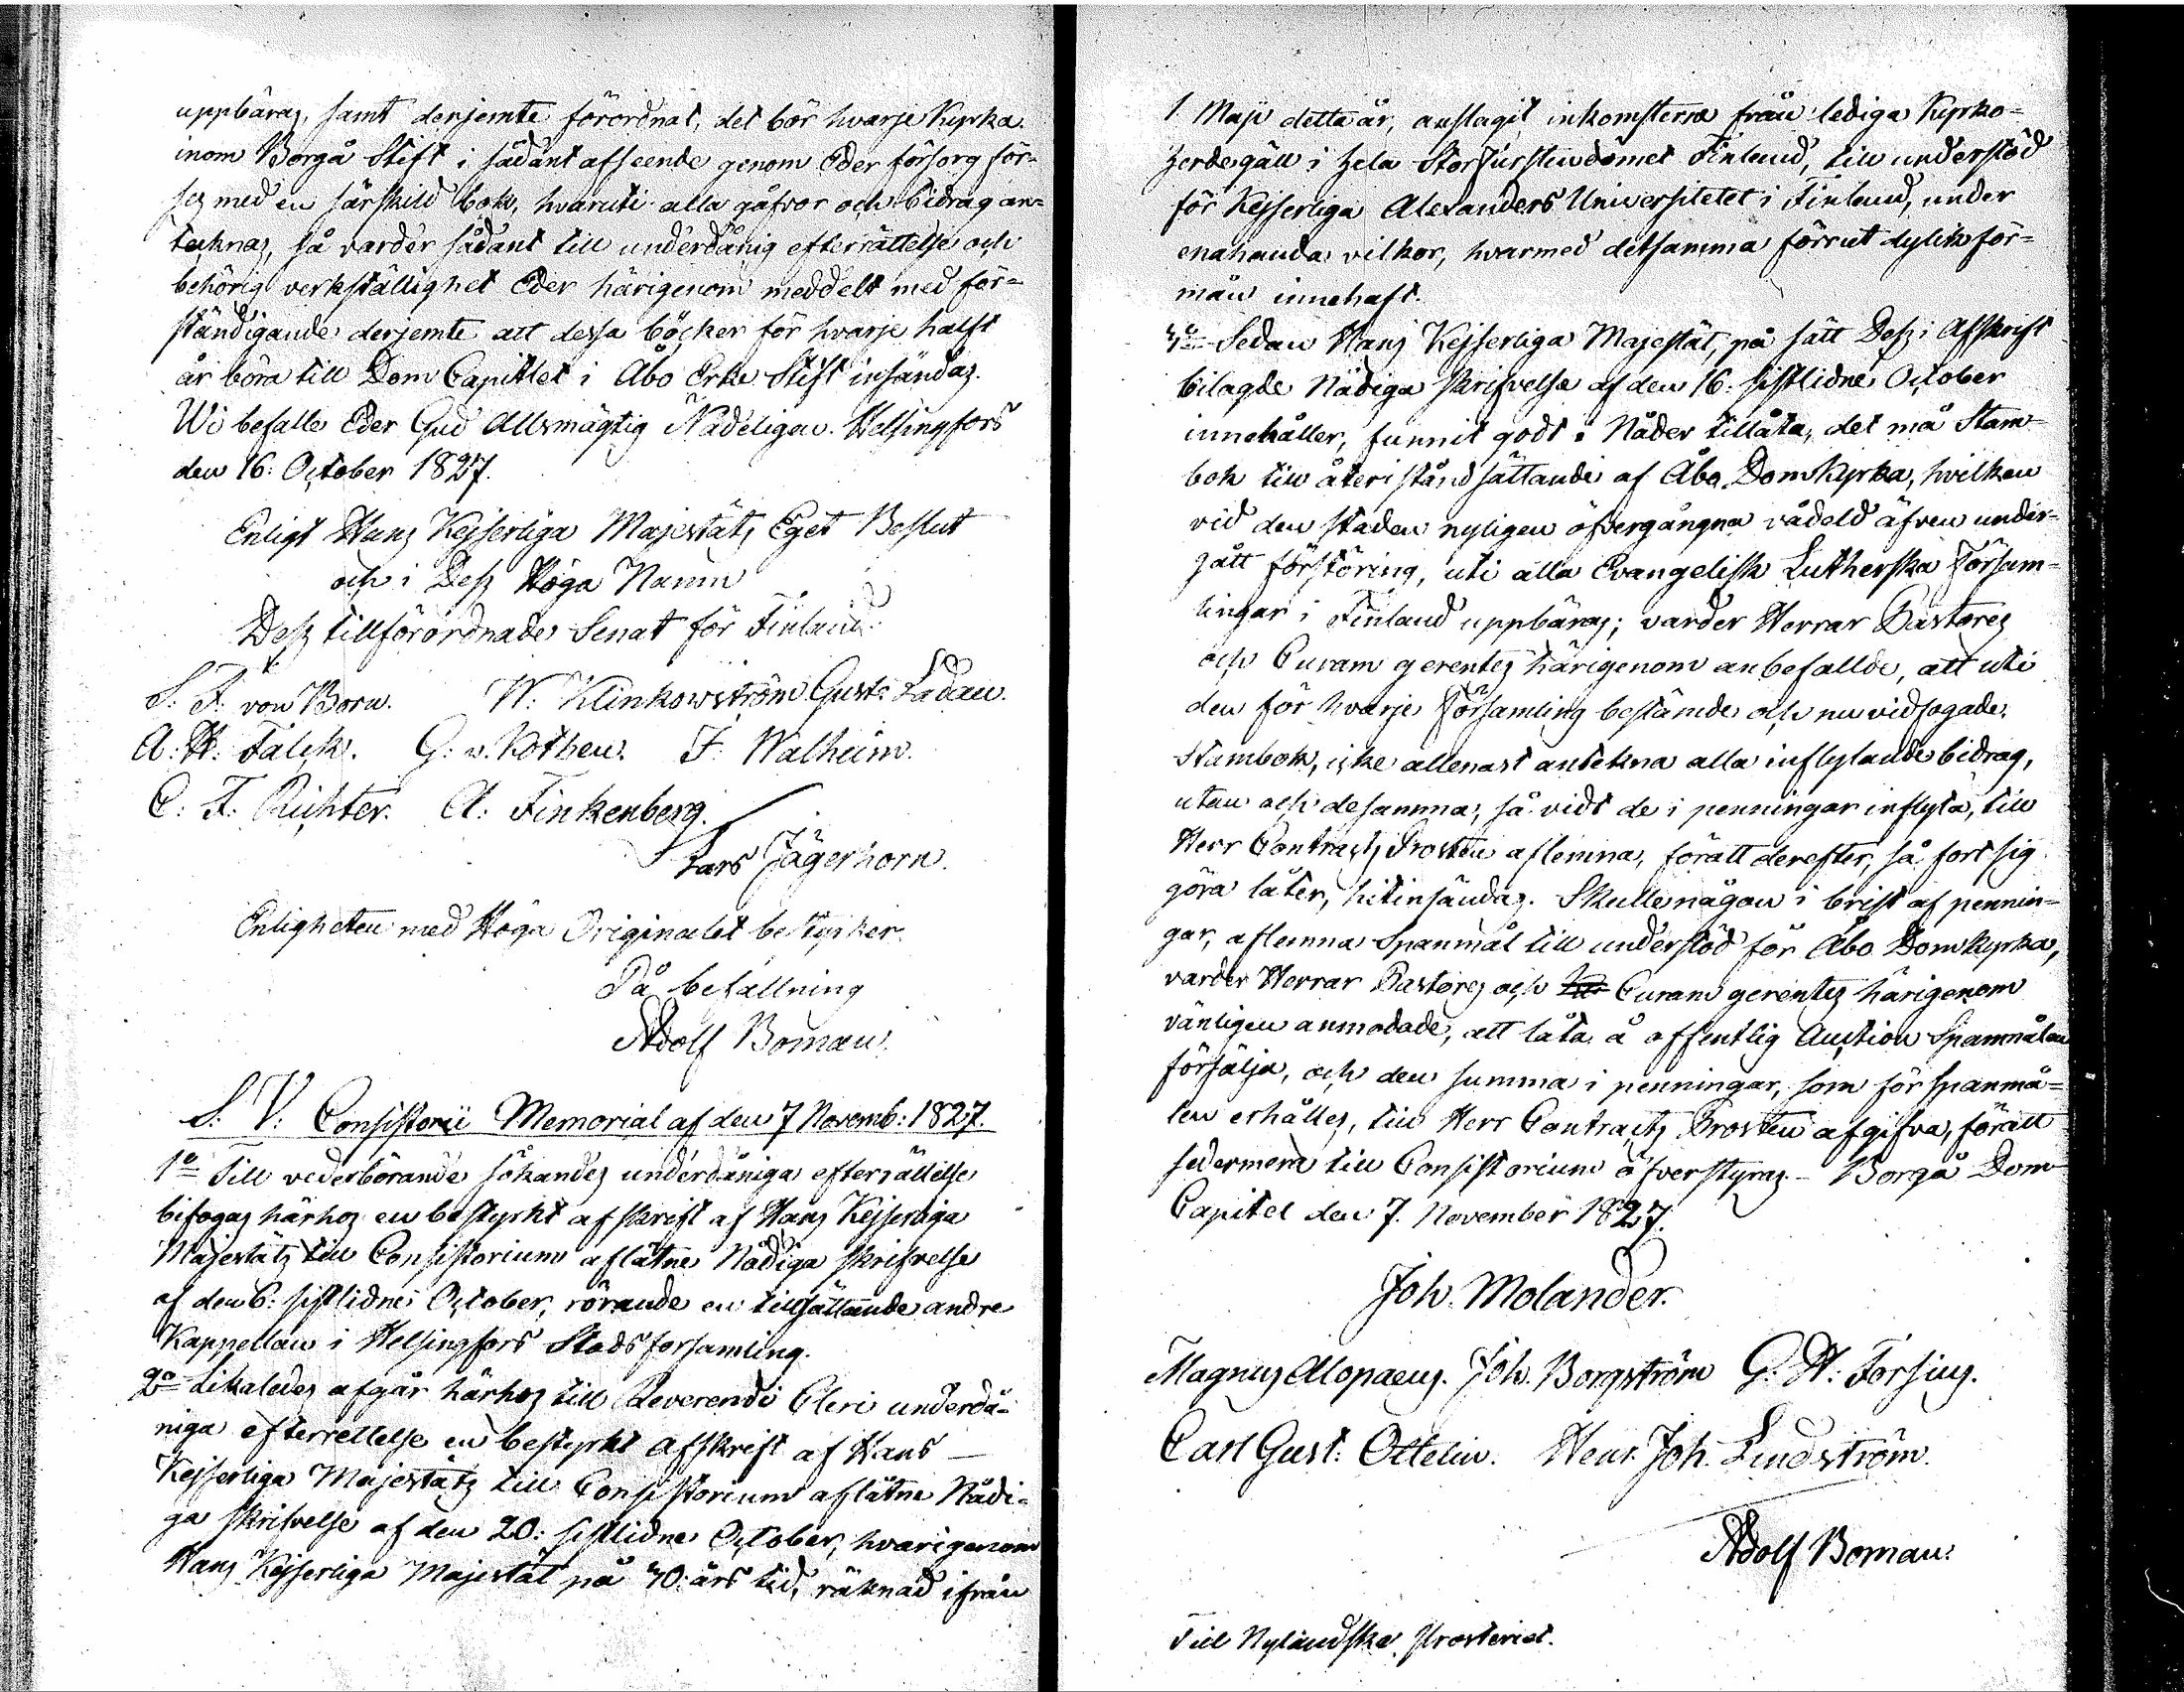 uppbäras, samt derjemte förordnat, det bör hvarje Kyrka
inom Borgå Stift i sådant afseende genom Eder försorg för-
ses med en särskild bok, hvaruti alla gåfvor och bidrag an-
tecknas, så varder sådant till underdånig efterrättelse och
behörig verkställighet Eder härigenom meddelt med för-
ständigande derjemte att dessa böcker för hvarje halft
år böra till Dom Capitlet i Åbo Erke Stift insändas.
Wi befalle Eder Gud Allsmägtig Nådeligen. Helsingfors
den 16: October 1827.
Enligt Hans Kejserliga Majestäts Eget Beslut
och i Dess Höga Namn
Dess tillförordnade Senat för Finland.
S. F. von Born. W. Klinkowström Gust: Ladau.
A: H: Falck. G: v. Kothen. F: Walheim.
C: F: Richter. A: Finkenberg.
Lars Jägerhorn.
Enligheten med Höga Originalet bestyrker.
På befallning
Adolf Boman.
S: V: Consistorii Memorial af den 7 Novemb: 1827.
1o Till vederbörande sökandes underdåniga efterrättelse
bifogas härhos en bestyrkt afskrift af Hans Kejserliga
Majestäts till Consistorium aflåtne Nådiga skrifvelse
af den 6: sistlidne October, rörande en tillsättande andre
Kappellan i Helsingfors Stads församling.
2o Likaledes afgår härhos till Reverendi Cleri underdå-
niga efterrettelse en bestyrkt afskrift af Hans
Kejserliga Majestäts till Consistorium aflåtne Nådi-
ga skrifvelse af den 20: sistlidne October, hvarigenom
Hans Kejserliga Majestät på 40: års tid, räknad ifrån
1 Maji detta år, anslagit inkomsterne från lediga Kyrko-
herdegäll i hela Storfurstendömet Finland, till understöd
för Kejserliga Alexanders Universitetet i Finland, under
enahanda vilkor, hvarmed detsamma förrut dylik för-
mån innehaft.
Sedan Hans Kejserliga Majestät, på sätt Dess i Afskrift
bilagde Nådiga skrifvelse af den 16: sistlidne October
innehåller, funnit godt i Nåder tillåta, det må Stam-
bok till återiståndsättande af Åbo Domkyrka, hvilken
vid den staden nyligen öfvergångna vådeld äfven under-
gått förstöring, uti alla Evangelisk Lutherska Försam-
lingar i Finland uppbäras; varder Herrar Pastores
och Curam gerentes härigenom anbefallde, att uti
den för hvarje Församling bestämde och nu vidfogade
Stambok, icke allenast antekna alla inflytande bidrag,
utan och desamma, så vidt de i penningar inflyta, till
Herr Contracts Prosten aflemna, förätt derefter, så fort sig
göra låter, hitinsändas. Skulle någon i brist af pennin-
gar, aflemna Spanmål till understöd för Åbo Domkyrka,
varder Herrar Pastores och Curam gerentes härigenom
vänligen anmodade, att låta å offentlig Auction Spanmålen
försälja, och den summa i penningar, som för spanmå-
len erhålles, till Herr Contracts Prosten afgifva, förätt
sedermera till Consistorium öfverstyras. - Borgå Dom
Capitel den 7. November 1827.
Joh. Molander.
Magnus Alopaeus. Joh. Borgström G. H: Forsius.
Carl Gust: Ottelin. Henr. Joh. Lindström.
Adolf Boman.
Till Nyländska Prosteriet.